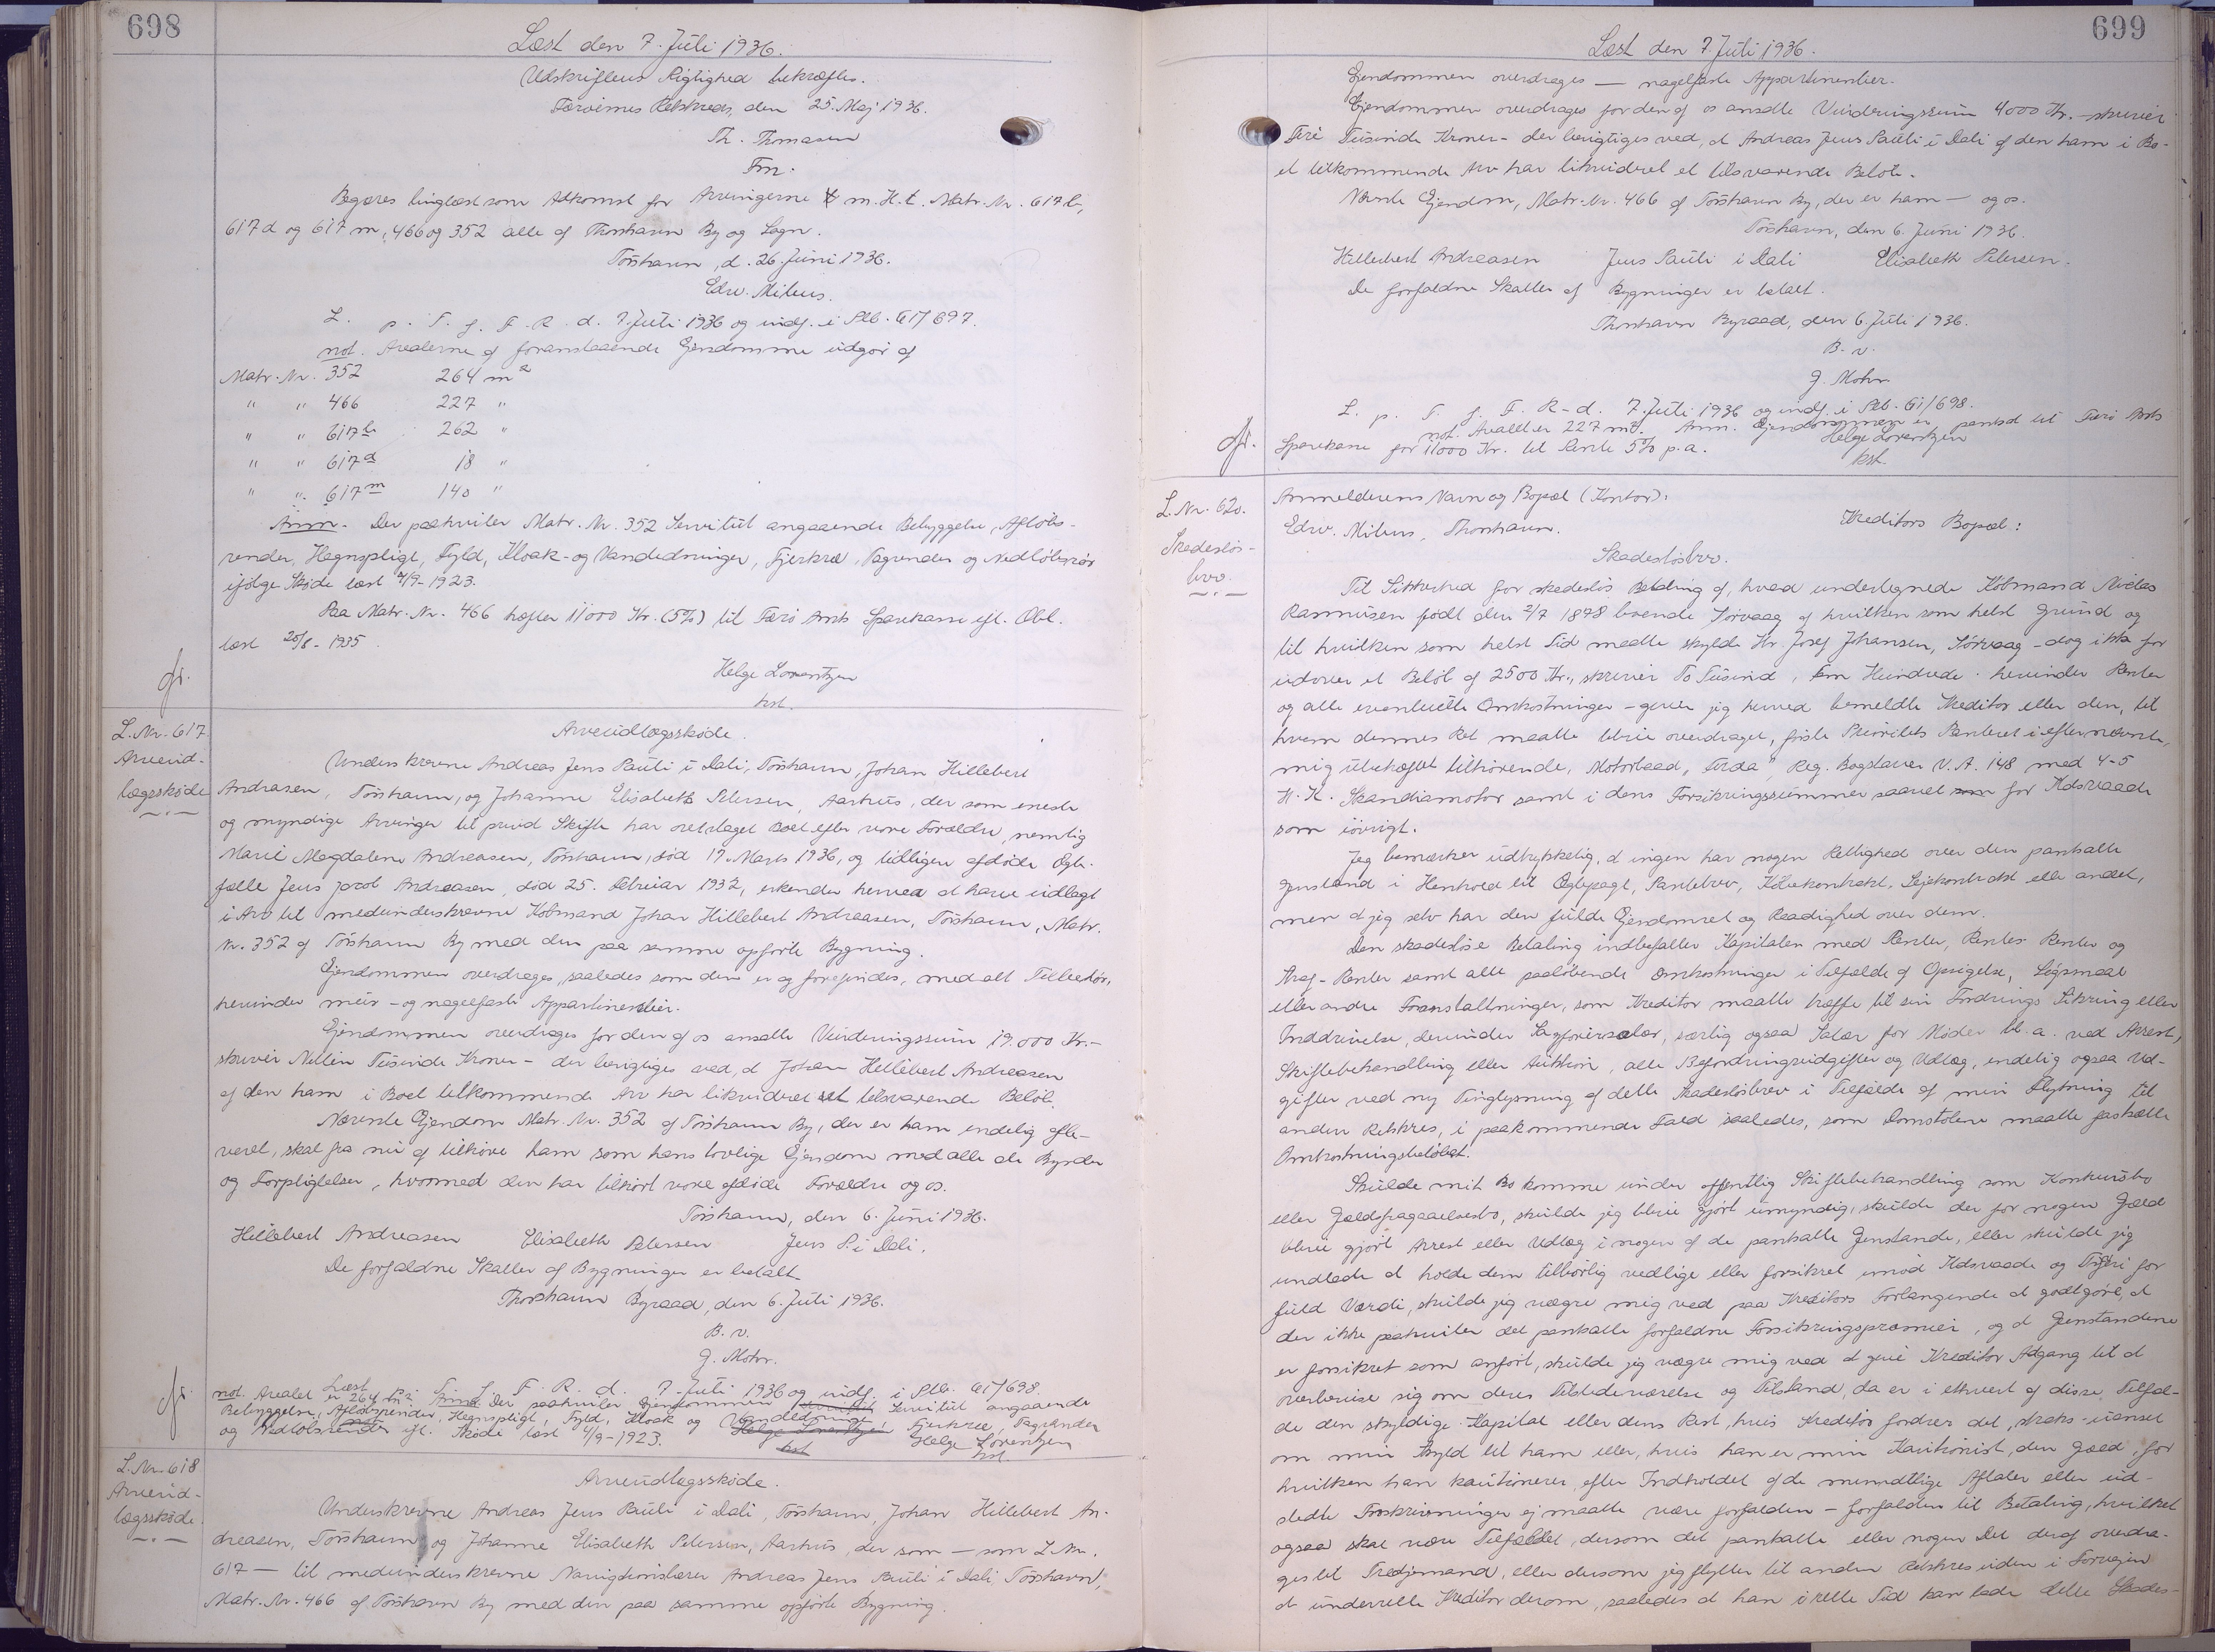 698
Læst den 7. Juli 1936.
Udskriftens Rigtighed bekræftes.
Færøernes Retskreds, den 25. Maj 1936.
Th. Thomasen
Fm.
Begæres tinglæst som Adkomst for Arvingerne m. H. t. Matr. Nr. 617 b,
617 d og 617 m, 466 og 352 alle af Thorshavn By og Sogn.
Tórshavn, d. 26. Juni 1936.
Edw. Mitens.
L. p. T. f. F. R. d. 7. Juli 1936 og indf. i Skb. G1/697.
not. Arealerne af foranstaaende Ejendomme udgør af
Matr. Nr. 352 264 m²
" " 466 227 "
" " 617 b 262 "
" " 617 d 18 "
" " 617 m 140 "
Anm. Der paahviler Matr. Nr. 352 Servitut angaaende Bebyggelse, Afløbs-
render, Hegnspligt, Fyld, Kloak- og Vandledninger, Fjerkræ, Tagrender og Nedløbsrør
ifølge Skøde læst 4/9-1923.
Paa Matr. Nr. 466 hæfter 11000 Kr. (5%) til Færø Amts Sparekasse ifl. Obl.
læst 20/8-1935.
Helge Lorentzen
kst.
L. Nr. 617
Arveud-
lægsskøde
Arveudlægsskøde.
Underskrevne Andreas Jens Pauli i Dali, Tórshavn, Johan Hillebert
Andreasen, Tórshavn, og Johanne Elisabeth Petersen, Aarhus, der som eneste
og myndige Arvinger til privat Skifte har overtaget Boet efter vore Forældre, nemlig
Marie Magdalene Andreasen, Tórshavn, død 17. Marts 1936, og tidligere afdøde Ægte-
fælle Jens Jacob Andreasen, død 25. Februar 1932, erkender herved at have udlagt
i Arv til medunderskrevne Købmand Johan Hillebert Andreasen, Tórshavn, Matr.
Nr. 352 af Tórshavn By med den paa samme opførte Bygning.
Ejendommen overdrages, saaledes som den er og forefindes, med alt Tilbehør,
herunder mur- og nagelfaste Appartinentier.
Ejendommen overdrages for den af os ansatte Vurderingssum 19.000 Kr.-
skriver Nitten Tusinde Kroner - der berigtiges ved, at Johan Hillebert Andreasen
af den ham i Boet tilkommende Arv har likvideret et tilsvarende Beløb.
Nævnte Ejendom Matr. Nr. 352 af Tórshavn By, der er ham endelig afle-
veret, skal fra nu af tilhøre ham som hans lovlige Ejendom med alle de Byrder
og Forpligtelser, hvormed den har tilhørt vore afdøde Forældre og os.
Tórshavn, den 6. Juni 1936.
Hillebert Andreasen Elisabeth Petersen Jens P. i Dali.
De forfaldne Skatter af Bygninger er betalt
Thorshavn Byraad, den 6. Juli 1936.
B. v.
J. Mohr.
Læst p. T. f. F. R. d. 7. Juli 1936 og indf. i Skb. G1/698.
not. Arealet er 264 m². Anm. Der paahviler Ejendommen Servitut angaaende
Bebyggelse, Afløbsrender, Hegnspligt, Fyld, Kloak og Vandledninger, Fjerkræ, Tagrender
og Nedløbsrender ifl. Skøde læst 4/9-1923. Helge Lorentzen Helge Lorentzen
kst. kst.
L. Nr. 618
Arveud-
lægsskøde.
Arveudlægsskøde.
Underskrevne Andreas Jens Pauli i Dali, Tórshavn, Johan Hillebert An-
dreasen, Tórshavn og Johanne Elisabeth Petersen, Aarhus, der som — som L. Nr.
617 — til medunderskrevne Navigationslærer Andreas Jens Pauli i Dali, Tórshavn,
Matr. Nr. 466 af Tórshavn By med den paa samme opførte Bygning.
699
Læst den 7. Juli 1936.
Ejendommen overdrages — nagelfaste Appartinentier.
Ejendommen overdrages for den af os ansatte Vurderingssum 4000 Kr. - skriver
Fire Tusinde Kroner - der berigtiges ved, at Andreas Jens Pauli i Dali af den ham i Bo-
et tilkommende Arv har likvideret et tilsvarende Beløb.
Nævnte Ejendom, Matr. Nr. 466 af Tórshavn By, der er ham — og os.
Tórshavn, den 6. Juni 1936.
Hillebert Andreasen Jens Pauli i Dali Elisabeth Petersen.
De forfaldne Skatter af Bygninger er betalt.
Thorshavn Byraad, den 6. Juli 1936.
B. v.
J. Mohr
L. p. T. f. F. R. d. 7. Juli 1936 og indf. i Skb. G1/698.
not. Arealet er 227 m². Anm. Ejendommen er pantsat til Færø Amts
Sparekasse for 11000 Kr. til Rente 5% p.a. Helge Lorentzen
kst.
L. Nr. 620.
Skadesløs-
brev.
Anmelderens Navn og Bopæl (Kontor):
Edw. Mitens, Thorshavn. Kreditors Bopæl:
Skadesløsbrev.
Til Sikkerhed for skadesløs Betaling af, hvad undertegnede Købmand Niclas
Rasmussen født den 2/7 1878 boende Sørvaag af hvilken som helst Grund og
til hvilken som helst Tid maatte skylde Hr. Josef Johansen, Sørvaag - dog ikke for
udover et Beløb af 2500 Kr., skriver To Tusind, Fem Hundrede, herunder Renter
og alle eventuelle Omkostninger - giver jeg herved bemeldte Kreditor eller den, til
hvem dennes Ret maatte blive overdraget, første Prioritets Panteret i efternævnte,
mig ubehæftet tilhørende, Motorbaad, "Firda", Reg. Bogstaver V. A. 148 med 4-5
H. K. Skandiamotor samt i dens Forsikringssummer saavel for Ildsvaade
som iøvrigt.
Jeg bemærker udtrykkelig, at ingen har nogen Rettighed over den pantsatte
Genstand i Henhold til Ægtepagt, Pantebrev, Købekontrakt, Lejekontrakt eller andet,
men at jeg selv har den fulde Ejendomsret og Raadighed over dem.
Den skadesløse Betaling indbefatter Kapitalen med Renter, Renters Renter og
Straf-Renter samt alle paaløbende Omkostninger i Tilfælde af Opsigelse, Søgsmaal
eller andre Foranstaltninger, som Kreditor maatte træffe til sin Fordrings Sikring eller
Inddrivelse, derunder Sagførersalær, særlig ogsaa Salær for Møder bl. a. ved Arrest,
Skiftebehandling eller Auktion, alle Befordringsudgifter og Udlæg, endelig ogsaa Ud-
gifter ved ny Tinglysning af dette Skadesløsbrev i Tilfælde af min Flytning til
anden Retskres, i paakommende Fald saaledes, som Domstolene maatte fastsætte
Omkostningsbeløbet.
Skulde mit Bo komme under offentlig Skiftebehandling som Konkursbo
eller Gældsfragaaelsesbo, skulde jeg blive gjort umyndig, skulde der for nogen Gæld
blive gjort Arrest eller Udlæg i nogen af de pantsatte Genstande, eller skulde jeg
undlade at holde dem tilbørlig vedlige eller forsikret imod Ildsvaade og Tyveri for
fuld Værdi, skulde jeg vægre mig ved paa Kreditors Forlangende at godtgøre, at
der ikke paahviler det pantsatte forfaldne Forsikringspræmier, og at Genstandene
er forsikret som anført, skulde jeg vægre mig ved at give Kreditor Adgang til at
overbevise sig om deres Tilstedeværelse og Tilstand, da er i ethvert af disse Tilfæl-
de den skyldige Kapital eller dens Rest, hvis Kreditor fordrer det, straks - uanset
om min Gyld til ham eller, hvis han er min Kautionist, den Gæld, for
hvilken han kautionerer, efter Indholdet af de mundtlige Aftaler eller ud-
stedte Forskrivninger ej maatte være forfalden - forfalden til Betaling, hvilket
ogsaa skal være Tilfældet, dersom det pantsatte eller nogen Del deraf overdra-
ges til Tredjemand, eller dersom jeg flytter til anden Retskres uden i Forvejen
at underrette Kreditor derom, saaledes at han i rette Tid kan lade dette Skades-